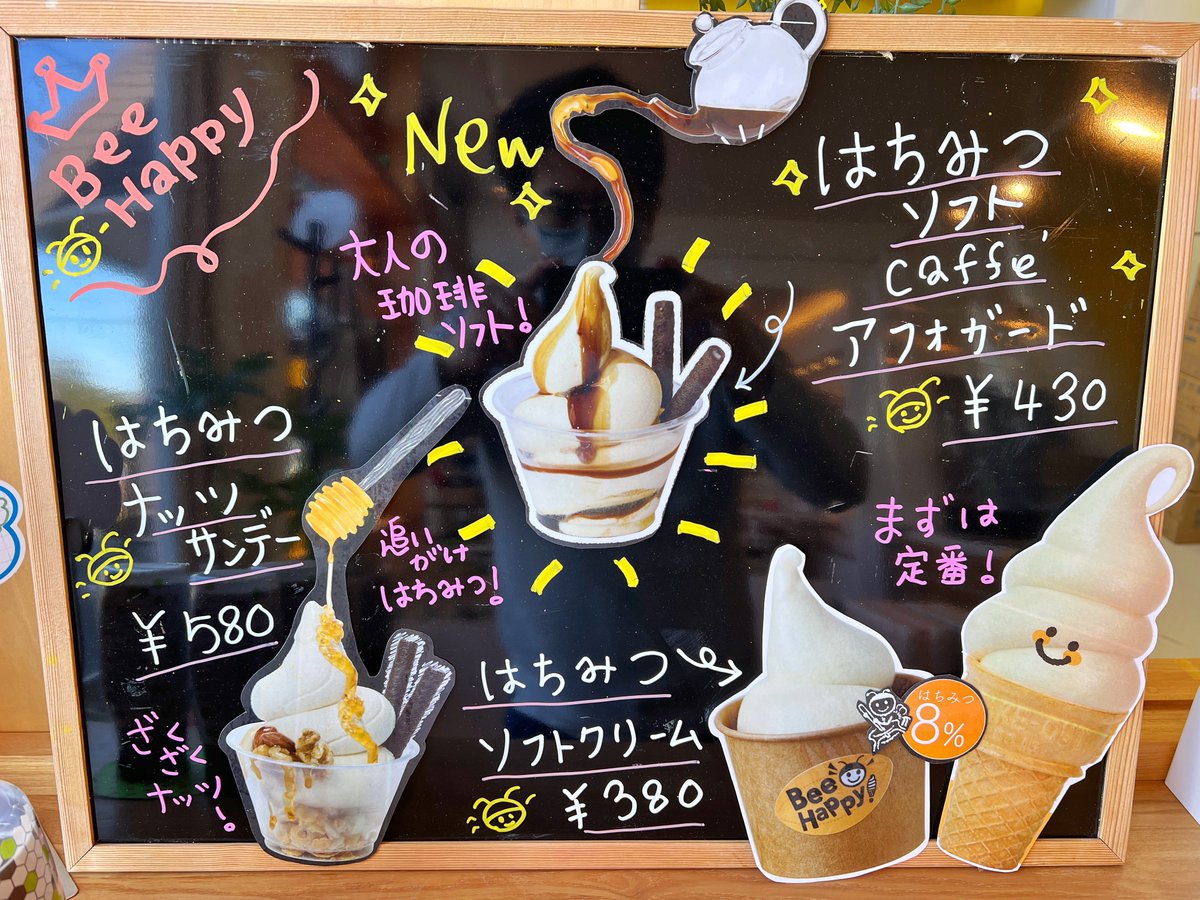 Bee
Happy
New
大人の
珈琲
ソフト!
はちみつ
ソフト
caffé
アフォガード
¥430
はちみつ
ナッツ
サンデー
¥580
追い
がけ
はちみつ!
ざく
ざく
ナッツ!
はちみつ
ソフトクリーム
¥380
まずは
定番!
はちみつ
8%
Bee
Happy!